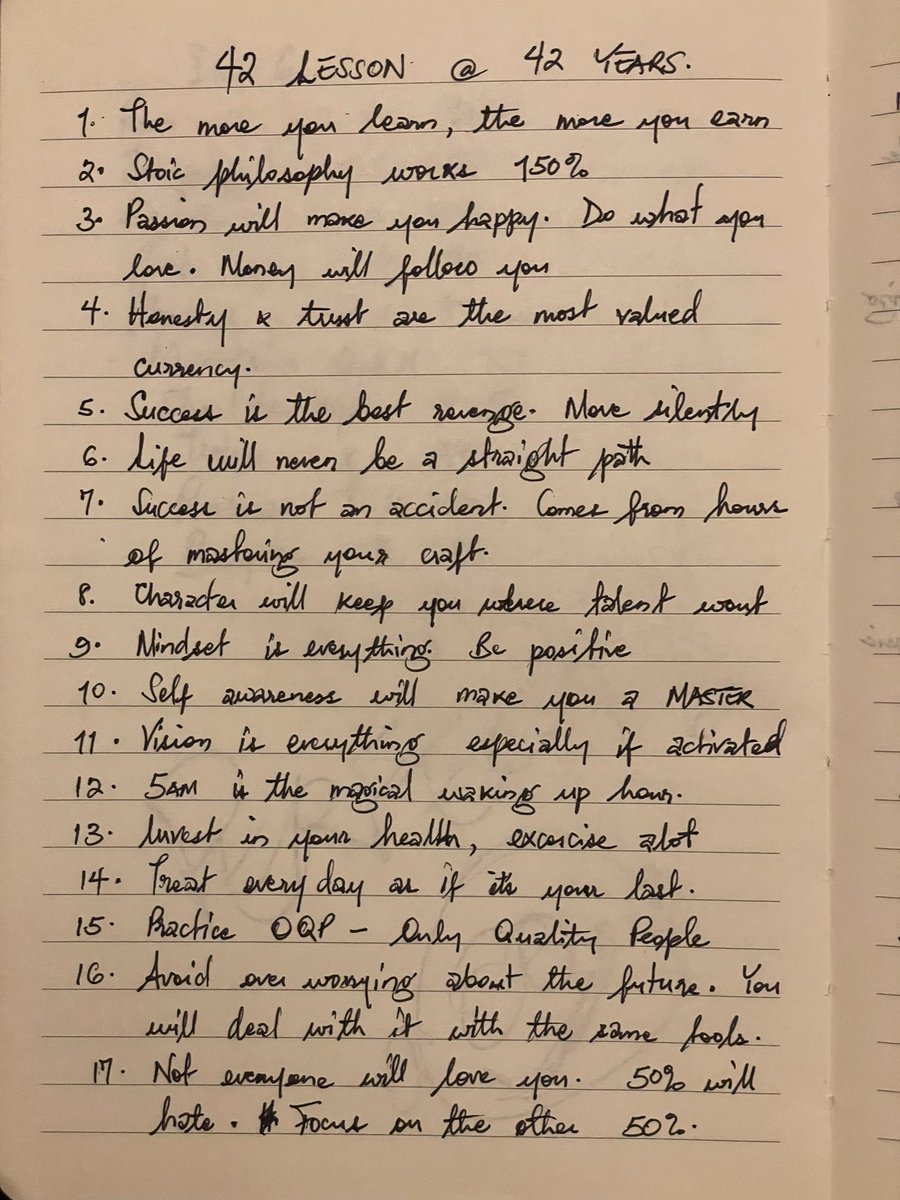 42 LESSON @ 42 YEARS.
1. The more you learn, the more you earn
2. Stoic philosophy works 150%
3. Passion will make you happy. Do what you
love. Money will follow you
4. Honesty & trust are the most valued
currency.
5. Success is the best revenge. Move silently
6. Life will never be a straight path
7. Success is not an accident. Comes from hours
of mastering your craft.
8. Character will keep you where talent wont
9. Mindset is everything. Be positive
10. Self awareness will make you a MASTER
11. Vision is everything especially if activated
12. 5AM is the magical waking up hour.
13. Invest in your health, excercise alot
14. Treat everyday as if its your last.
15. Practice OQP - Only Quality People
16. Avoid over worrying about the future. You
will deal with it with the same tools.
17. Not everyone will love you. 50% will
hate. Focus on the other 50%.